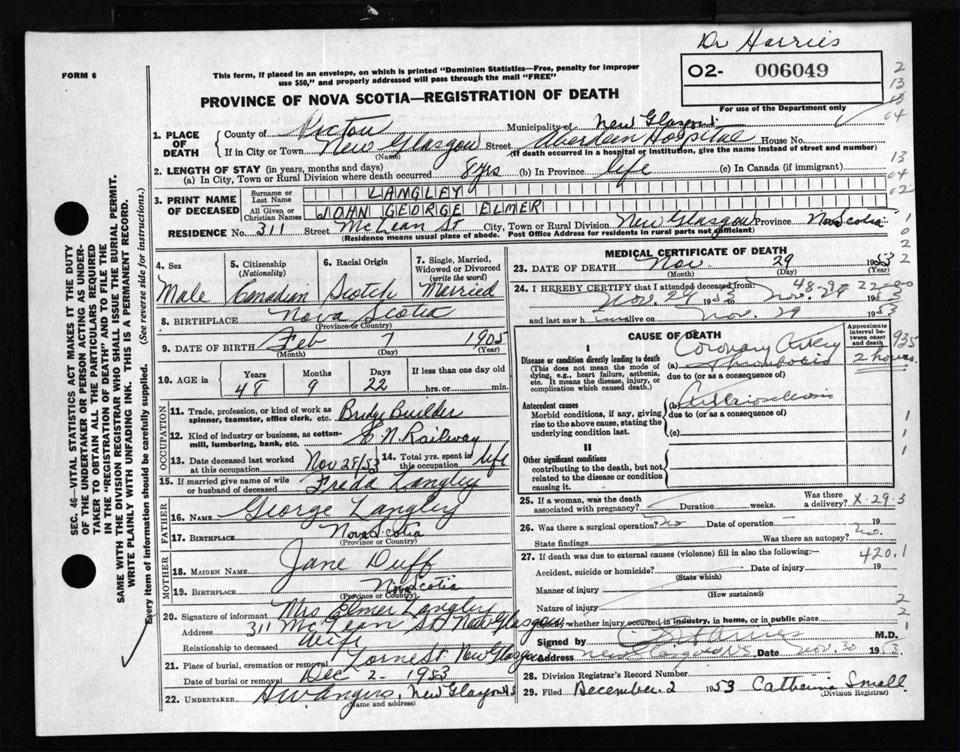 Dr Harries
FORM 6
This form, if placed in an envelope, on which is printed "Dominion Statistics—Free, penalty for improper
use $50," and properly addressed will pass through the mail "FREE"
O2- 006049
For use of the Department only
PROVINCE OF NOVA SCOTIA—REGISTRATION OF DEATH
1. PLACE OF DEATH
County of Pictou Municipality of New Glasgow
If in City or Town New Glasgow Street Aberdeen Hospital House No.
(Name) (If death occurred in a hospital or institution, give the name instead of street and number)
2. LENGTH OF STAY (in years, months and days)
(a) In City, Town or Rural Division where death occurred 8 yrs (b) In Province life (c) In Canada (if immigrant)
3. PRINT NAME OF DECEASED
Surname or Last Name LANGLEY
All Given or Christian Names JOHN GEORGE ELMER
RESIDENCE No. 311 Street McLean St City, Town or Rural Division New Glasgow Province Nova Scotia
(Residence means usual place of abode. Post Office Address for residents in rural parts not sufficient)
4. Sex Male
5. Citizenship (Nationality) Canadian
6. Racial Origin Scotch
7. Single, Married, Widowed or Divorced (write the word) Married
8. BIRTHPLACE Nova Scotia
(Province or Country)
9. DATE OF BIRTH Feb 7 1905
(Month) (Day) (Year)
10. AGE Years 48 Months 9 Days 22 If less than one day old hrs. or min.
OCCUPATION
11. Trade, profession, or kind of work as spinner, teamster, office clerk, etc. Bridge Builder
12. Kind of industry or business, as cotton-mill, lumbering, bank, etc. C N Railway
13. Date deceased last worked at this occupation Nov 28/53
14. Total yrs. spent in this occupation life
15. If married give name of wife or husband of deceased Freda Langley
FATHER
16. NAME George Langley
17. BIRTHPLACE Nova Scotia
(Province or Country)
MOTHER
18. MAIDEN NAME Jane Duff
19. BIRTHPLACE Nova Scotia
(Province or Country)
20. Signature of informant Mrs Elmer Langley
Address 311 McLean St New Glasgow
Relationship to deceased Wife
21. Place of burial, cremation or removal New Glasgow
Date of burial or removal Dec 2 - 1953
22. UNDERTAKER New Glasgow NS
(Name and address)
MEDICAL CERTIFICATE OF DEATH
23. DATE OF DEATH Nov. 29 1953
(Month) (Day) (Year)
24. I HEREBY CERTIFY that I attended deceased from:
Nov. 29 1953 to Nov. 29 1953
and last saw h im alive on Nov. 29 1953
CAUSE OF DEATH
Approximate interval between onset and death
I
Disease or condition directly leading to death
(This does not mean the mode of dying, e.g., heart failure, asthenia, etc. It means the disease, injury, or complication which caused death.)
(a) Coronary Artery Thrombosis 2 hours.
due to (or as a consequence of)
Antecedent causes
Morbid conditions, if any, giving rise to the above cause, stating the underlying condition last.
(b)
due to (or as a consequence of)
(c)
II
Other significant conditions
contributing to the death, but not related to the disease or condition causing it.
25. If a woman, was the death associated with pregnancy? Duration weeks. Was there a delivery?
X-29.3
26. Was there a surgical operation? no Date of operation 19
State findings Was there an autopsy? no.
27. If death was due to external causes (violence) fill in also the following:— 420.1
Accident, suicide or homicide? Date of injury 19
(State which)
Manner of injury
(How sustained)
Nature of injury
Specify whether injury occurred in industry, in home, or in public place
Signed by Harries M.D.
Address New Glasgow NS Date Nov. 30 1953
28. Division Registrar's Record Number
29. Filed December 2 1953 Catherine Small
(Division Registrar)
SEC. 46—VITAL STATISTICS ACT MAKES IT THE DUTY
OF THE UNDERTAKER OR PERSON ACTING AS UNDER-
TAKER TO OBTAIN ALL THE PARTICULARS REQUIRED
IN THE "REGISTRATION OF DEATH" AND TO FILE THE
SAME WITH THE DIVISION REGISTRAR WHO SHALL ISSUE THE BURIAL PERMIT.
WRITE PLAINLY WITH UNFADING INK. THIS IS A PERMANENT RECORD.
Every item of information should be carefully supplied. (See reverse side for instructions.)